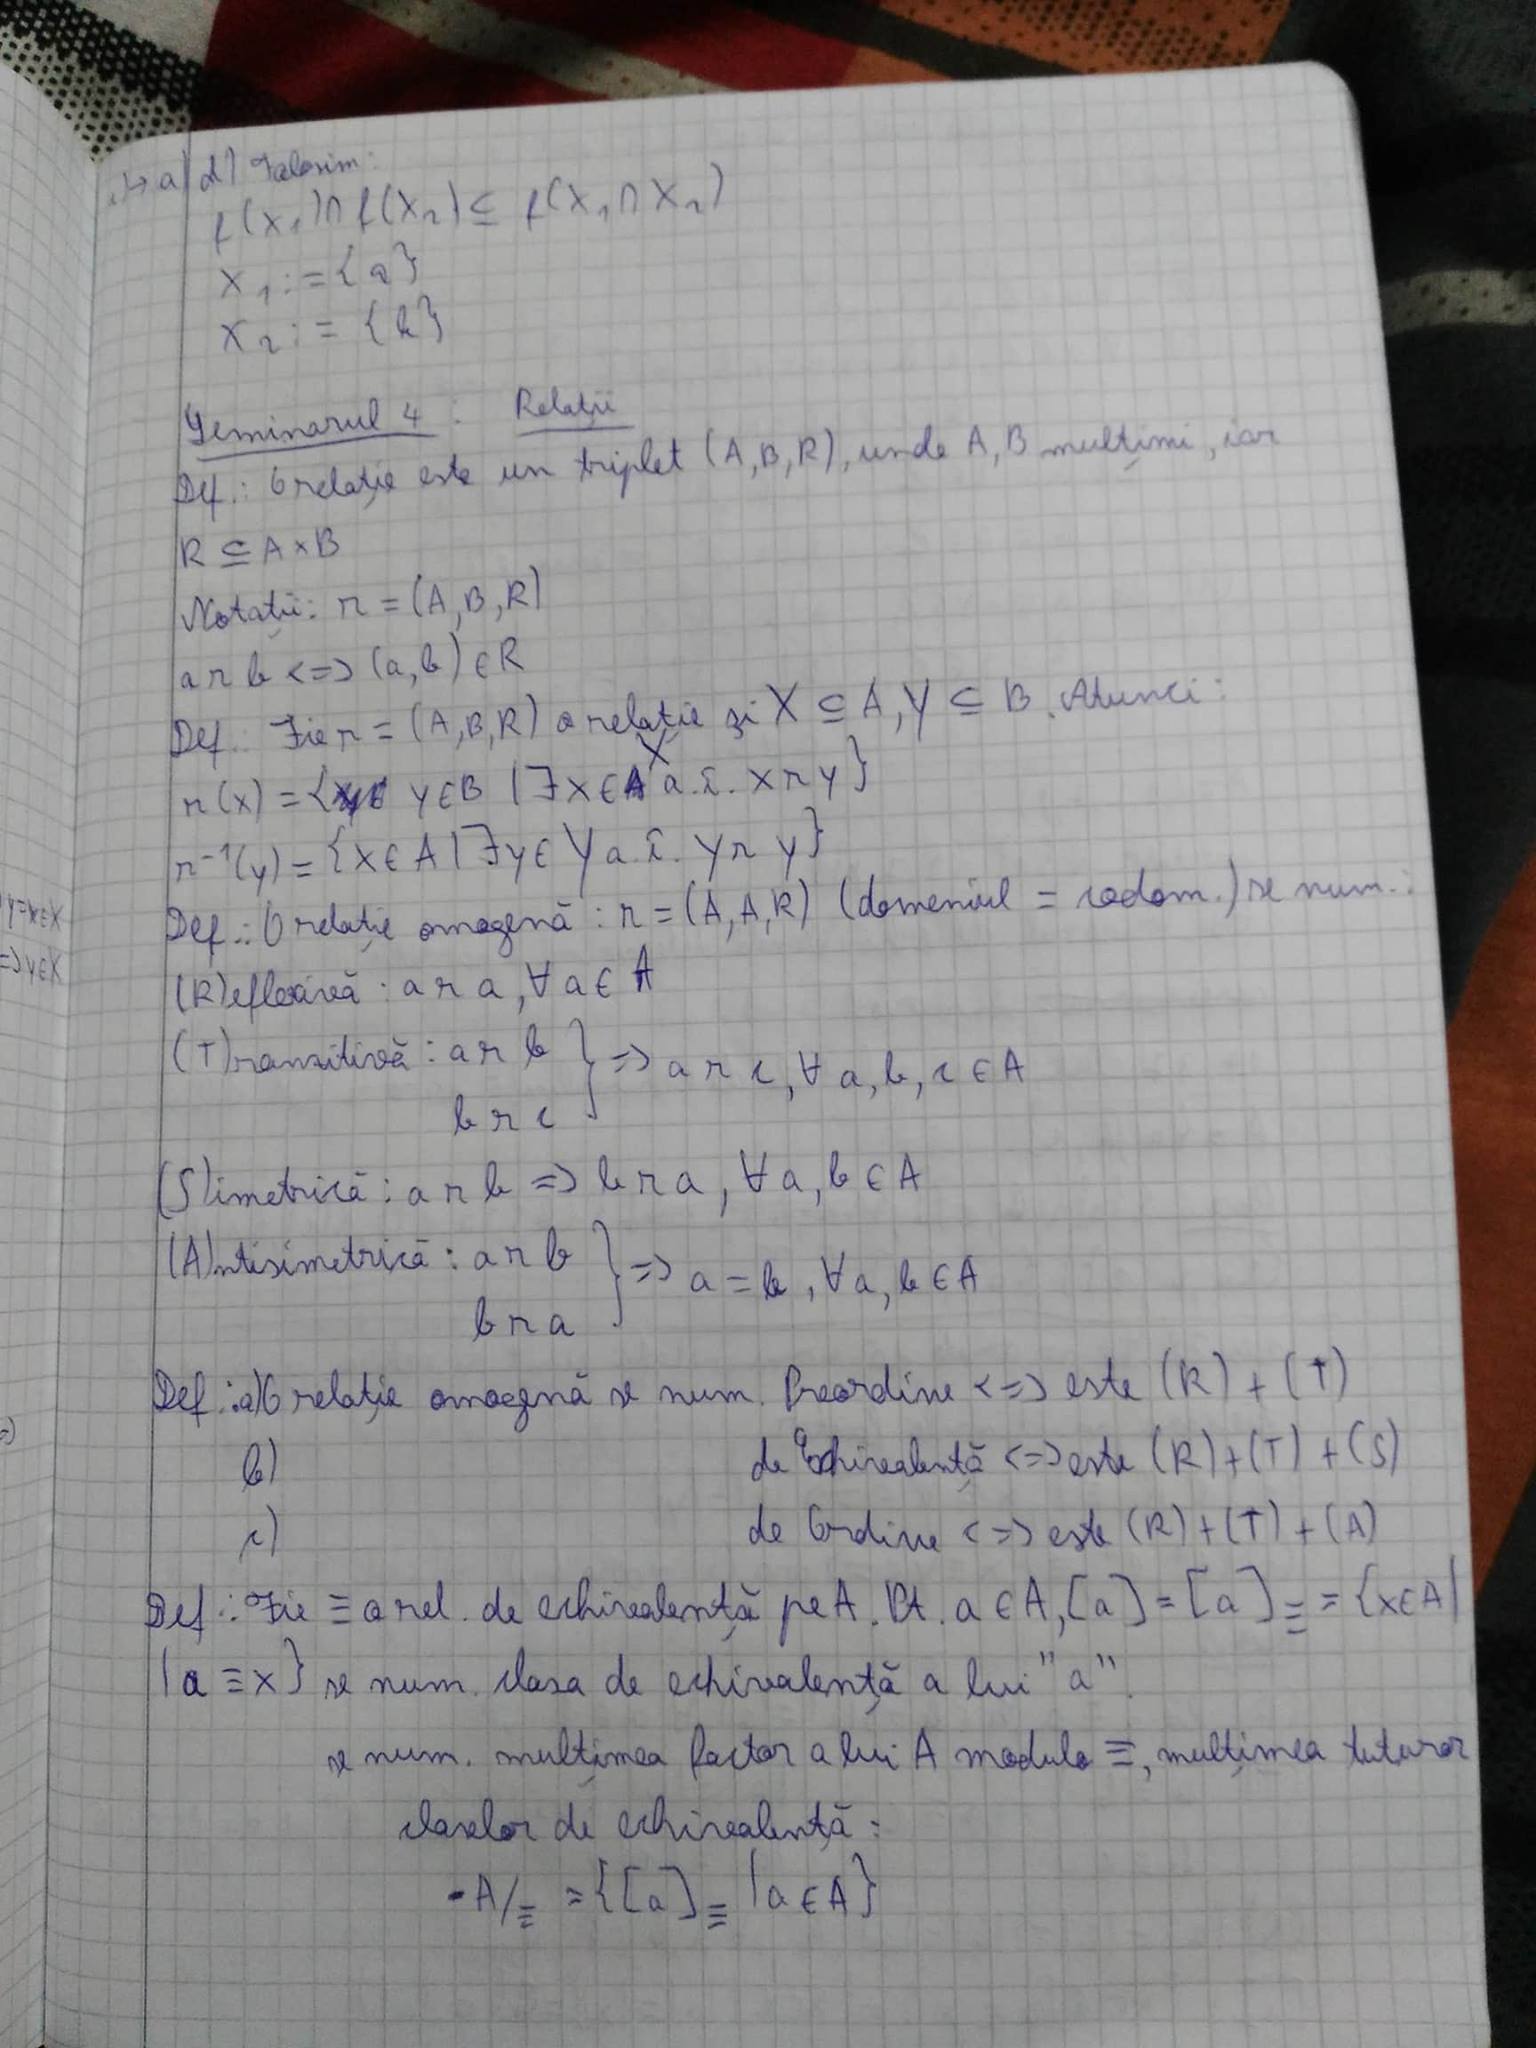 ↳ a) d) Folosim:
f(X₁)∩f(X₂)⊆ f(X₁∩X₂)
X₁:={a}
X₂:= {b}
Seminarul 4: Relații
Def.: O relație este un triplet (A,B,R), unde A,B mulțimi, iar
R ⊆ A×B
Notații: r=(A,B,R)
a r b <=> (a,b)∈R
Def.: Fie r=(A,B,R) o relație și X⊆A, Y⊆B. Atunci:
r(x)={y∈B |∃x∈X a.î. x r y}
r⁻¹(y)={x∈A|∃y∈Y a.î. y r y}
y=x∈X
Def.: O relație omogenă: r=(A,A,R) (domeniul = codom.) se num.:
=> y∈X
(R)eflexivă: a r a, ∀a∈A
(T)ranzitivă: a r b } => a r c, ∀a,b,c∈A
b r c
(S)imetrică: a r b => b r a, ∀a,b∈A
(A)ntisimetrică: a r b } => a=b, ∀a,b∈A
b r a
Def.: a) O relație omogenă se num. Preordine <=> este (R)+(T)
b) de Echivalență <=> este (R)+(T)+(S)
c) de Ordine <=> este (R)+(T)+(A)
Def.: Fie ≡ o rel. de echivalență pe A. Pt. a∈A, [a]=[a]≡={x∈A|
|a≡x} se num. clasa de echivalență a lui "a".
se num. mulțimea factor a lui A modulo ≡, mulțimea tuturor
claselor de echivalență:
- A/≡ = {[a]≡ |a∈A}